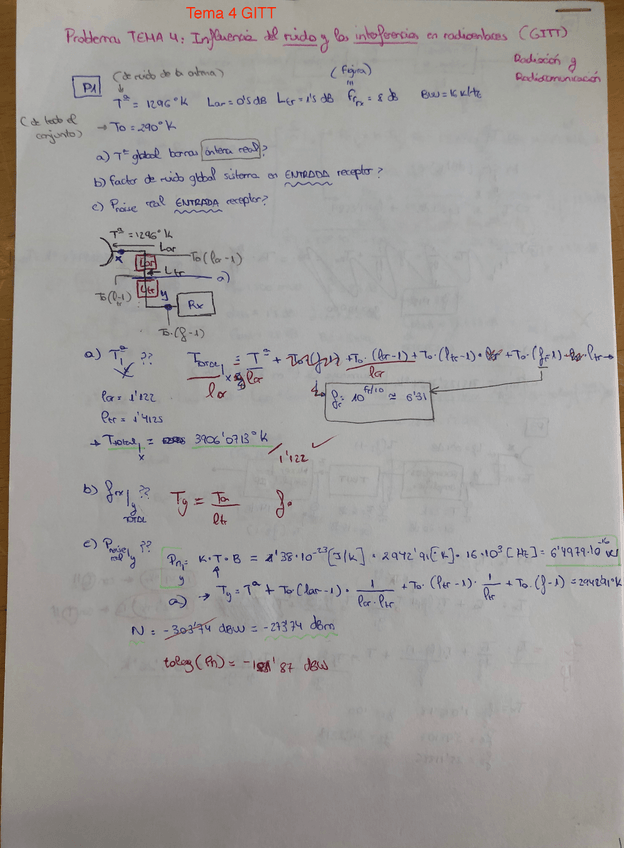 Tema 4 GITT
Problemas TEMA 4: Influencia del ruido y las interferencias en radioenlaces (GITT)
Radiación y
Radiocomunicación
P1
(de ruido de la antena)
(Figura)
Tª = 1296°K Lar = 0'5 dB Ltr = 1'5 dB Frx = 8 dB BW = 16 kHz
(de todo el
conjunto)
→ To = 290°K
a) Tª global bornas antena real?
b) Factor de ruido global sistema en ENTRADA receptor?
c) Pnoise real ENTRADA receptor?
Tª = 1296°K
Lar
x
Lar
To(lar-1)
Ltr
a)
Ltr
y
To(ltr-1)
Rx
To·(f-1)
a) T ª ??
x
Ttotal|x = Tª + To·(lar-1) + To·(ltr-1) + To·(fr-1) ltr
lar
lar = 1'122
ltr = 1'4125
fr = 10^8/10 ≃ 6'31
→ Ttotal|x = 3906'0713°K
/1'122 ✓
b) frx|y ??
TOTAL
Ty = Ta
ltr
c) Pnoise|y ??
real
Pn|y = K·T·B = 1'38·10^-23 [J/K] · 2942'91 [K] · 16·10^3 [Hz] = 6'4979·10^-16 W
a) → Ty = Tª + To·(lar-1)· 1/(lar·ltr) + To·(ltr-1)· 1/ltr + To·(f-1) = 2942'91°K
N = -303'74 dBW = -273'74 dBm
10log(Pn) = - '87 dBW